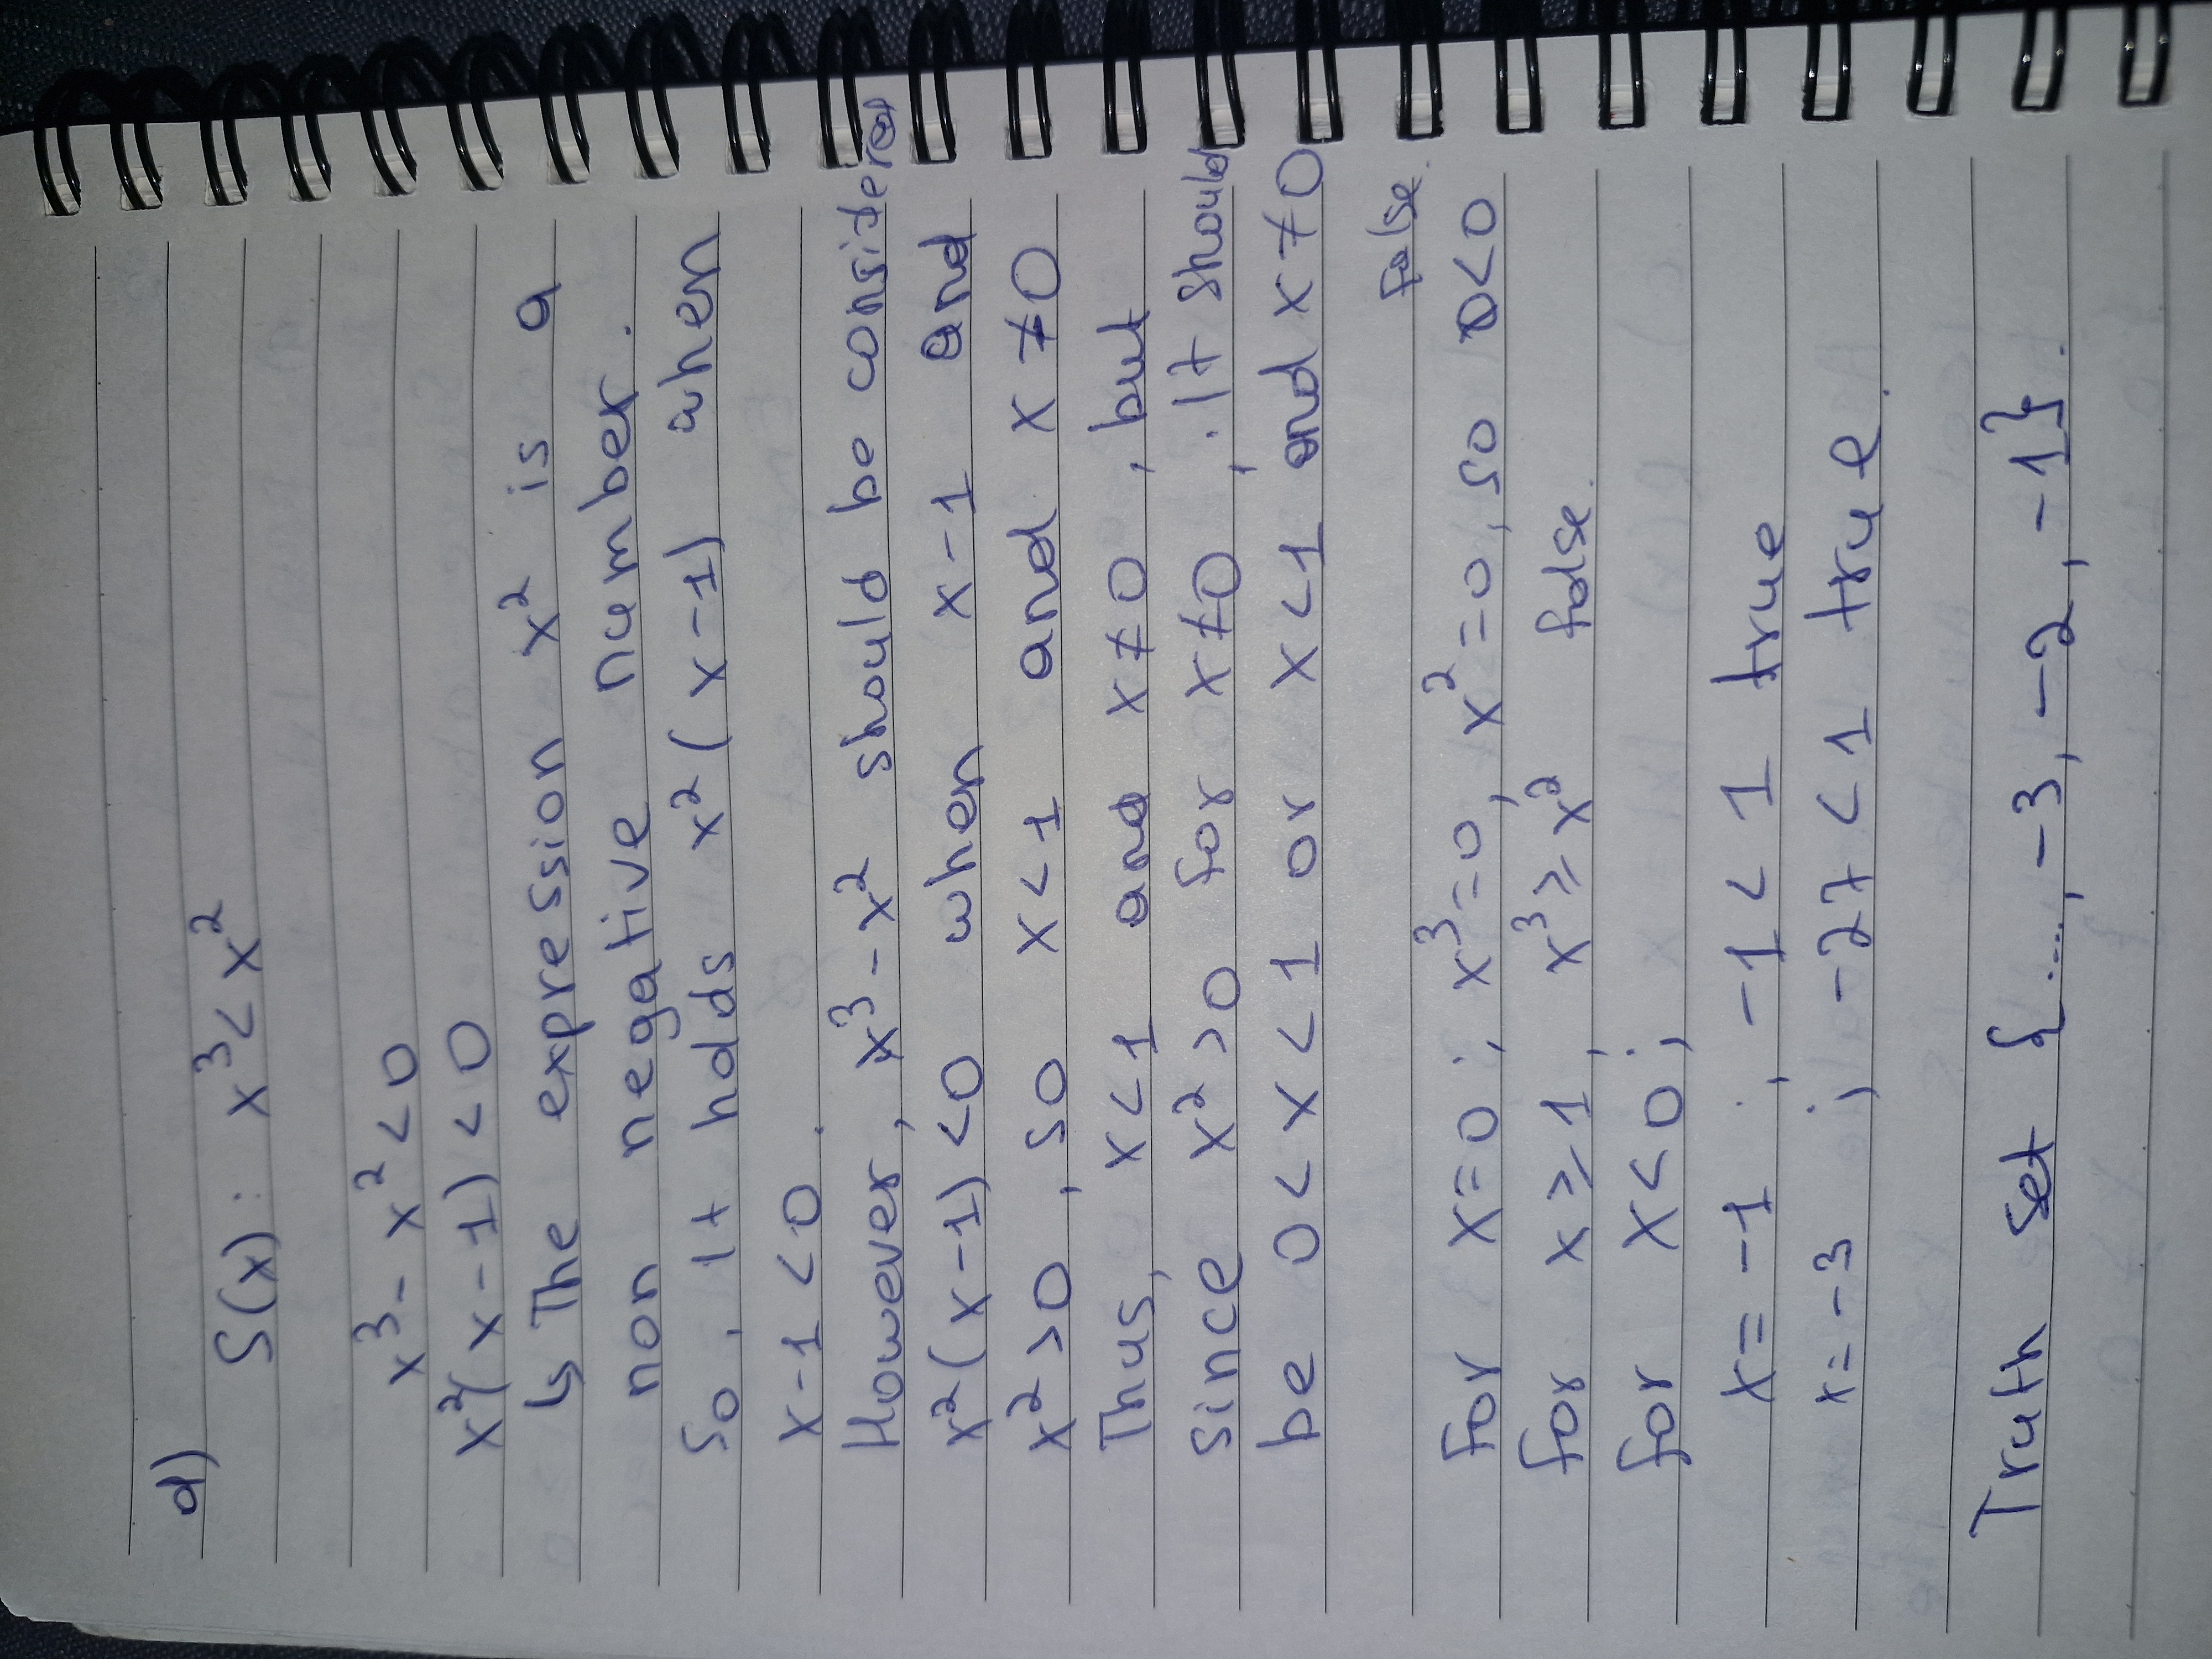 d)
S(x) : x³ < x²
x³ - x² < 0
x²(x - 1) < 0
↳ The expression x² is a
non negative number.
So, It holds x²(x-1) when
x-1 < 0.
However, x³ - x² should be considered
x²(x-1) < 0 when x-1 and
x² > 0, so x < 1 and x ≠ 0
Thus, x < 1 and x ≠ 0, but
since x² > 0 for x ≠ 0, It should
be 0 < x < 1 or x < 1 and x ≠ 0
False.
For x = 0; x³ = 0, x² = 0, so 0 < 0
for x ≥ 1, x³ ≥ x² false.
for x < 0;
x = -1 ; -1 < 1 true
x = -3 ; -27 < 1 true.
Truth set {...., -3, -2, -1}.